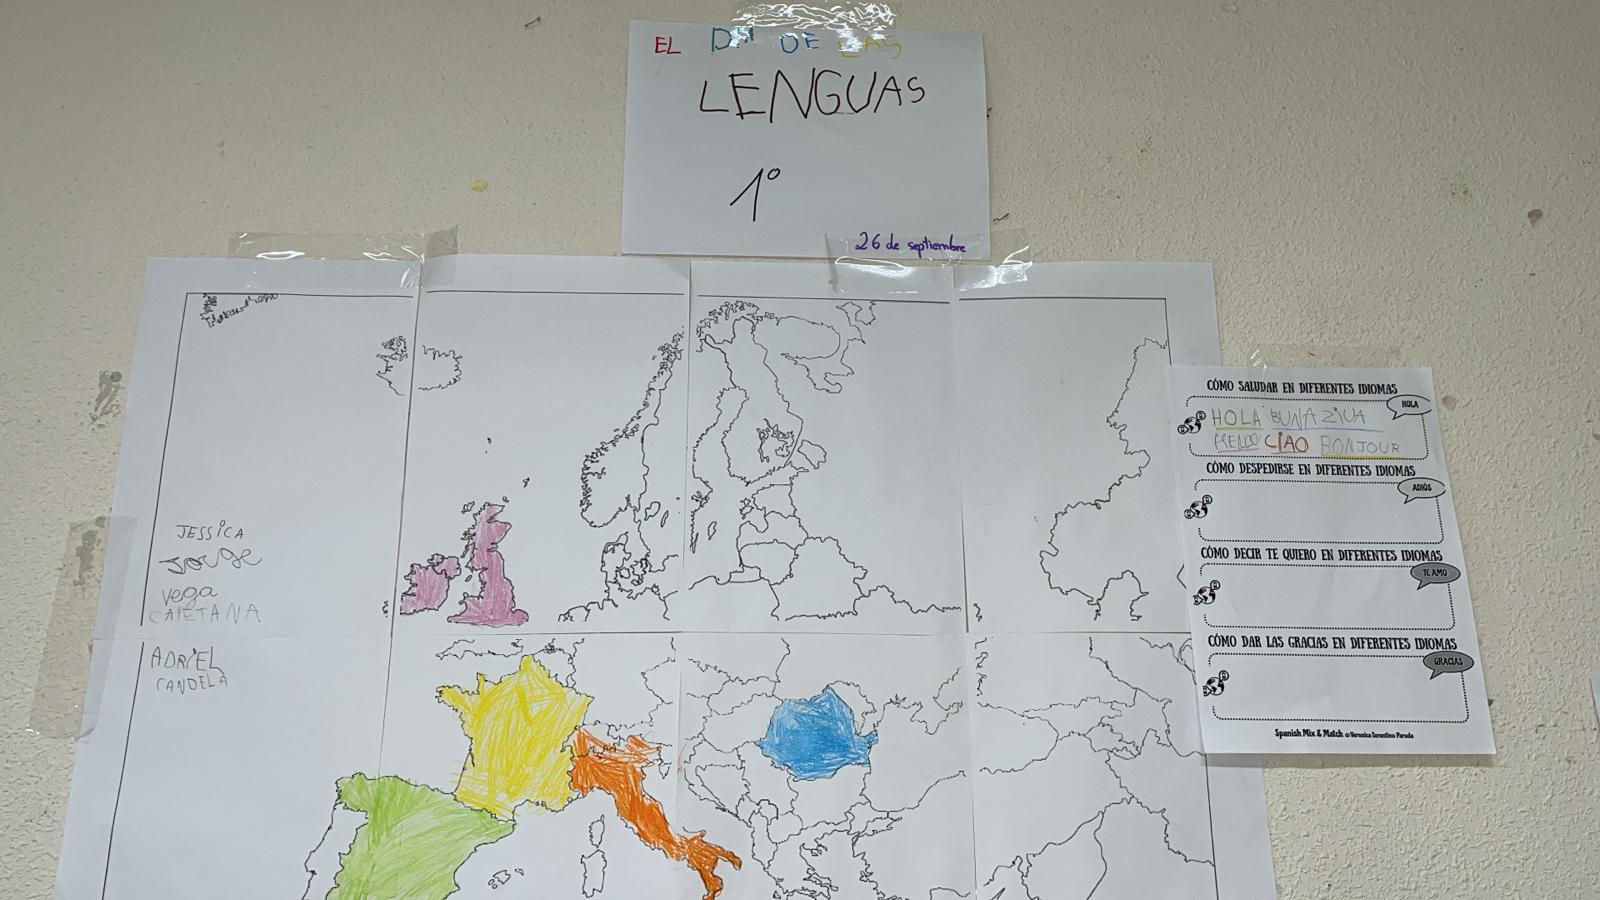 EL DIA DE LAS
LENGUAS
1º
26 de septiembre
JESSICA
Jorge
vega
CAIETANA
ADRIEL
CANDELA
CÓMO SALUDAR EN DIFERENTES IDIOMAS
HOLA
HOLA BUNA ZIUA
HELLO CIAO BONJOUR
CÓMO DESPEDIRSE EN DIFERENTES IDIOMAS
ADIÓS
CÓMO DECIR TE QUIERO EN DIFERENTES IDIOMAS
TE AMO
CÓMO DAR LAS GRACIAS EN DIFERENTES IDIOMAS
GRACIAS
Spanish Mix & Match © Veronica Tarantino Parada